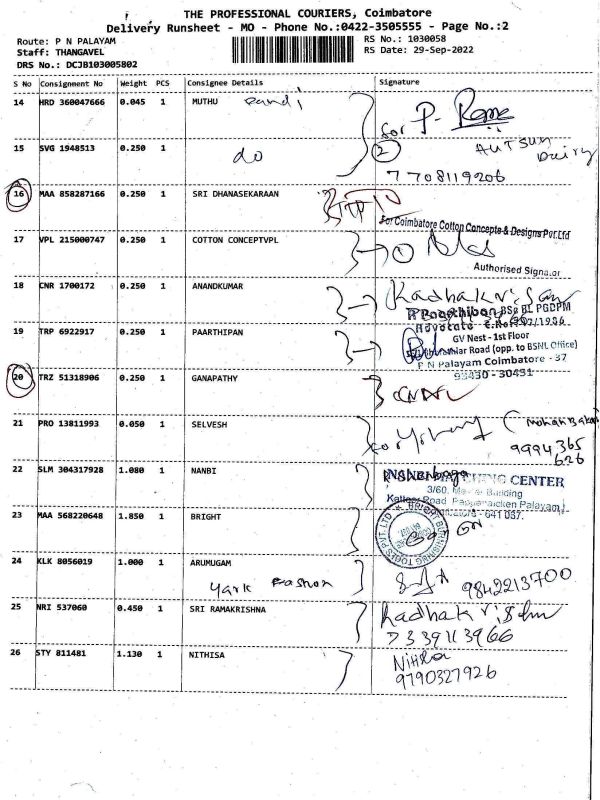 THE PROFESSIONAL COURIERS, Coimbatore
Delivery Runsheet - MO - Phone No.:0422-3505555 - Page No.:2
Route: P N PALAYAM
RS No.: 1030058
Staff: THANGAVEL
RS Date: 29-Sep-2022
DRS No.: DCJB103005802
S No Consignment No Weight PCS Consignee Details Signature
14 HRD 360047666 0.045 1 MUTHU Pandi
for P.
15 SVG 1948513 0.250 1 do 2
7708119206
16 MAA 858287166 0.250 1 SRI DHANASEKARAAN
For Coimbatore Cotton Concepts & Designs Pvt.Ltd
17 VPL 215000747 0.250 1 COTTON CONCEPTVPL
Authorised Signator
18 CNR 1700172 0.250 1 ANANDKUMAR
BSc BL PGDPM
Advocate
19 TRP 6922917 0.250 1 PAARTHIPAN
GV Nest - 1st Floor
Road (opp. to BSNL Office)
P N Palayam Coimbatore - 37
20 TRZ 51318906 0.250 1 GANAPATHY
21 PRO 13811993 0.050 1 SELVESH
for
9994365
626
22 SLM 304317928 1.080 1 NANBI
CENTER
3/60, Building
Road, Palayam
- 641 037.
23 MAA 568220648 1.850 1 BRIGHT
24 KLK 8056019 1.000 1 ARUMUGAM
Yark Fashion
9842213700
25 NRI 537060 0.450 1 SRI RAMAKRISHNA
7339113966
26 STY 811481 1.130 1 NITHISA
9790327926